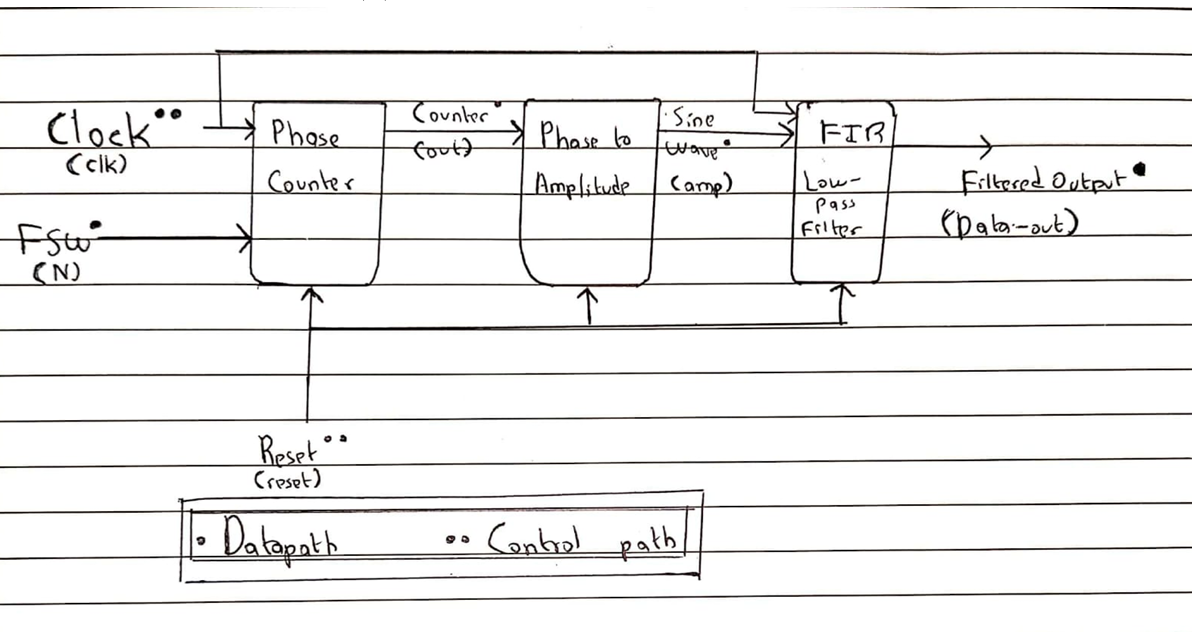 Clock••
(clk)
FSW•
(N)
Phase
Counter
Counter•
(out)
Phase to
Amplitude
Sine
wave•
(amp)
FIR
Low-
Pass
Filter
Filtered Output•
(Data-out)
Reset••
(reset)
• Datapath •• Control path